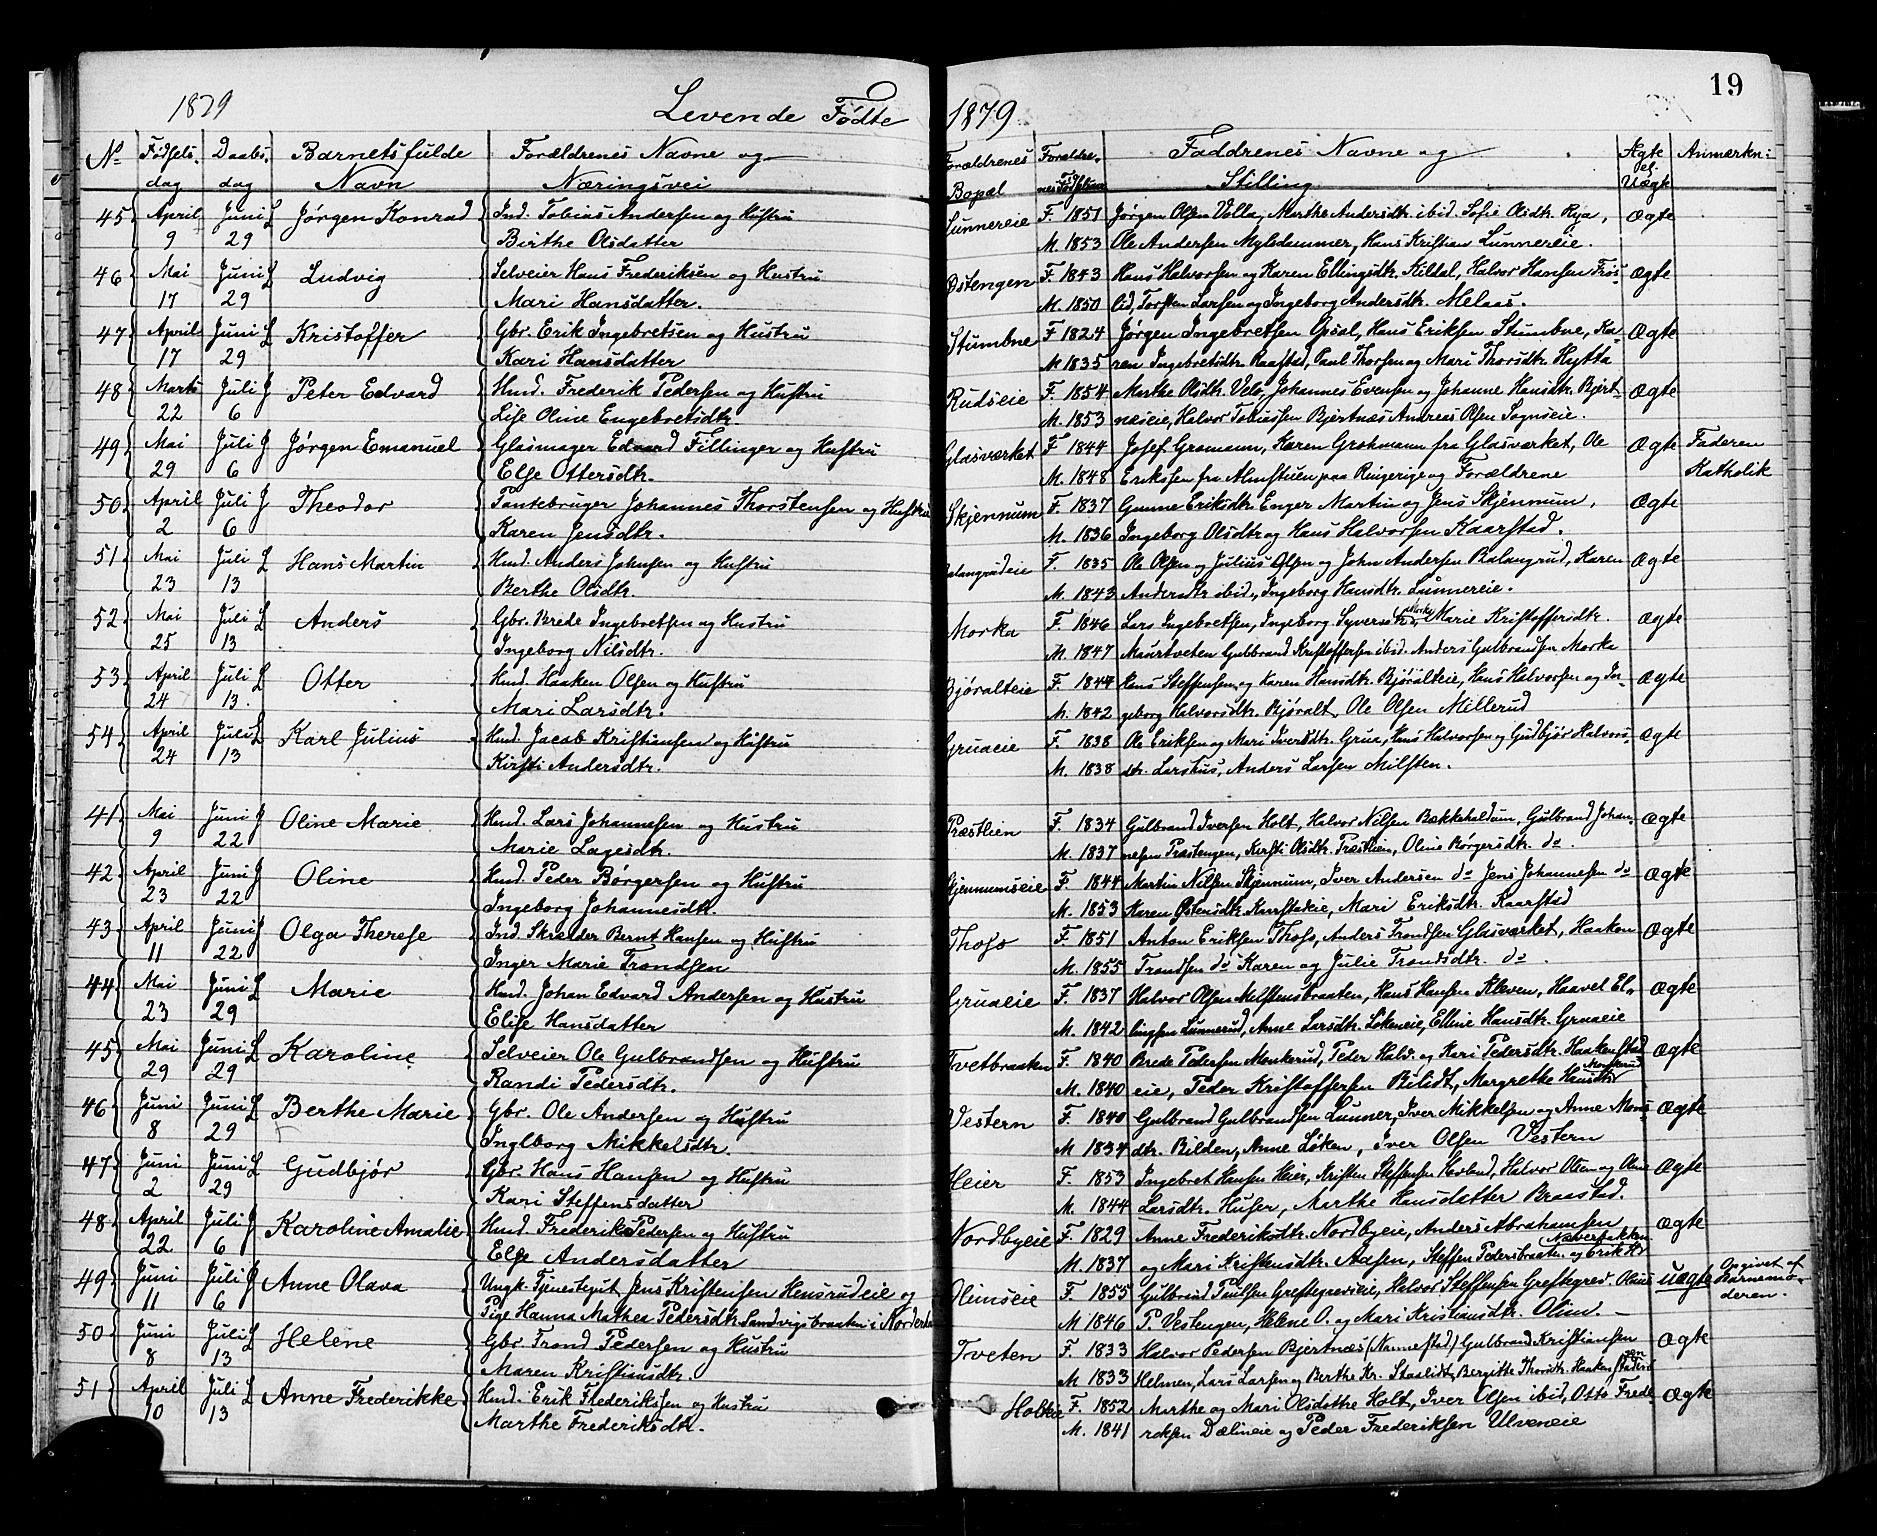 1879 Levende Fødte 1879 19
No Fødsels- Daabs- Barnets fulde Forældrenes Navne og Forældrenes Forældre- Faddrenes Navne og Ægte Anmærkn:
dag dag Navn Næringsvei Bopæl nes Fødselsaar Stilling el. Uægte
45 April Juni L Jørgen Konrad Ind. Tobias Andersen og Hustru Lunnereie F. 1851 Jørgen Olsen Volla, Marthe Andersdtr. ibid. Sofie Olsdtr. Rya, Ægte
9 29 Birthe Olsdatter M. 1853 Ole Andersen Myledammer, Hans Kristian Lunnereie.
46 Mai Juni L Ludvig Selveier Hans Frederiksen og Hustru Østengen F. 1843 Hans Halvorsen og Karen Ellingsdtr. Kildal, Halvor Hansen Frøs- Ægte
17 29 Mari Hansdatter. M. 1850 lid, Torsten Larsen og Ingeborg Andersdtr. Melaas.
47 April Juni L Kristoffer Gbr. Erik Ingebretsen og Hustru Stumbne F 1824 Jørgen Ingebretsen Opsal, Hans Eriksen Stumbne, Ka- Ægte
17 29 Kari Hansdatter M 1835 ren Ingebretsdtr. Raastad, Paul Thorsen og Mari Thorsdtr. Hytta
48 Marts Juli J Peter Edvard Hmd. Frederik Pedersen og Hustru Rudseie F. 1854 Marthe Olsdtr. Velo, Johannes Evensen og Johanne Hansdtr. Bjert- Ægte
22 6 Lise Oline Engebretsdtr. M. 1853 næseie, Halvor Tobiassen Bjertnæs Andreas Olsen Sognseie.
49 Mai Juli J Jørgen Emanuel Glasmager Edvard Fillinger og Hustru Glasværket F 1844 Josef Gromann, Karen Grohmann fra Glasværket, Ole Ægte Faderen
29 6 Else Ottersdtr. M. 1848 Eriksen fra Almstuen paa Ringerige og Forældrene Katholik
50 April Juli J Theodor Pantebruger Johannes Thorstensen og Hustru Skjennum F. 1837 Gunne Eriksdtr. Enger Martin og Jens Skjennum, Ægte
2 6 Karen Jensdtr. M. 1836 Ingeborg Olsdtr og Hans Halvorsen Kaarstad.
51 Mai Juli L Hans Martin Hmd. Anders Johnsen og Hustru Balangrudeie F. 1835 Ole Olsen og Julius Olsen og John Andersen Balangrud, Karen Ægte
23 13 Berthe Olsdtr. M. 1843 Andersdtr ibid., Ingeborg Hansdtr. Lunnereie.
52 Mai Juli L Anders Gbr. Brede Ingebretsen og Hustru Morka F. 1846 Lars Ingebretsen, Ingeborg Syversdtr. Morka, Marie Kristoffersdtr. Ægte
25 13 Ingeborg Nilsdtr. M. 1847 Maurtveten Gulbrand Kristoffersen ibid. Anders Gulbrandsen Morka
53 April Juli L Otter Hmd. Haaken Olsen og Hustru Bjøralteie F. 1844 Hans Steffensen og Karen Hansdtr. Bjøralteie, Hans Halvorsen og In- Ægte
24 13. Mari Larsdtr. M. 1842 geborg Halvorsdtr. Bjøralt. Ole Olsen Millerud
54 April Juli L Karl Julius Hmd. Jacob Kristiansen og Hustru Gruaeie F. 1838 Ole Eriksen og Mari Iversdtr. Grua, Hans Halvorsen og Gudbjør Halvors- Ægte
24 13 Kirsti Andersdtr. M. 1838 dtr. Larshus, Anders Larsen Milsten.
41 Mai Juni J Oline Marie Hmd. Lars Johannesen og Hustru Præstlien F. 1834 Gulbrand Iversen Holt, Halvor Nilsen Bækkehaldum, Gulbrand Johan- Ægte
9 22 Marie Lagesdtr. M. 1837 nesen Præstengen, Kirsti Olsdtr. Præstlien, Oline Børgersdtr. do.
42 April Juni J Oline Hmd. Peder Børgersen og Hustru Skjennumseie F 1844 Martin Nilsen Skjennum, Iver Andersen do Jens Johannesen do Ægte
23 22 Ingeborg Johannesdtr. M. 1853 Karen Østensdtr. Kaarstadeie, Mari Eriksdtr. Kaarstad
43 April Juni J Olga Therese Ind. Skrædder Bernt Hansen og Hustru Thoso F. 1851 Anton Eriksen Thoso, Anders Trondsen Glasværket, Haakon Ægte
11 22 Inger Marie Trondsen M. 1855 Trondsen do Karen og Julie Trondsdtr. do.
44 Mai Juni L Marie Hmd. Johan Edvard Andersen og Hustru Gruaeie F. 1837 Halvor Olsen Milstensbraaten, Hans Hansen Kleven, Haavel El- Ægte
23 29 Elise Hansdatter M. 1842 lingsen Lunnerud, Anne Larsdtr. Løkeneie, Elline Hansdtr. Gruaeie
45 Mai Juni L Karoline Selveier Ole Gulbrandsen og Hustru Tvetbraaten F. 1840 Brede Pedersen Monkerud, Peder Halv. og Kari Pedersdtr. Haakenstad Ægte
29 29 Randi Pedersdtr. M. 1840 eie, Peder Kristoffersen Bilidt, Margrethe Hansdtr Monkerud
46 Juni Juni L Berthe Marie Gbr. Ole Andersen og Hustru Vestern F. 1840 Gulbrand Gulbrandsen Lunner, Iver Mikkelsen og Anne Mons- Ægte
8 29 Ingeborg Mikkelsdtr. M 1834 dtr. Bilden, Anne Løken, Iver Olsen Vestern
47 Juni Juni L Gudbjør Gbr. Hans Hansen og Hustru Heier F. 1853 Ingebret Hansen Heier, Kristen Steffensen Hovland, Halvor Olsen og Oline Ægte
2 29 Kari Steffensdatter M. 1844 Larsdtr. Huser, Marthe Hansdatter Braastad.
48 April Juli J Karoline Amalie Hmd. Frederik Pedersen og Hustru Nordbyeie F. 1829 Anne Frederiksdtr. Nordbyeie, Anders Abrahamsen Ægte
22 6 Else Andersdatter M. 1837 og Mari Kristensdtr. Aasen, Steffen Pedersbraaten og Erik Næverbakken
49 Juni Juli J Anne Olava Ungk. Tjenestegut Jens Kristensen Hensrudeie og Olimseie F. 1855 Gulbrand Paulsen Greftegreveie, Halvor Steffensen Greftegrev. Oline Uægte Opgivet af
11 6 Pige Hanna Mathea Pedersdtr. Sandvigsbraaten i Norderhov M 1846 P. Vestengen, Helene O. og Mari Kristiansdtr. Olim. Barnemo-
50 Juni Juli L Helene Gbr. Trond Pedersen og Hustru Tveten F. 1833 Halvor Pedersen Bjertnæs (Nannestad) Gulbrand Kristiansen Ægte deren.
8 13 Maren Kristiansdtr. M. 1833 Helmen, Lars Larsen og Berthe Kr. Staalidt, Bergitte Thorsdtr. Haakenstad
51 April Juli L Anne Frederikke Hmd. Erik Frederiksen og Hustru Holteie F. 1852 Marthe og Mari Olsdøttre Holt, Iver Olsen ibid, Otto Frede- Ægte
10 13 Marthe Frederiksdtr. M. 1841 riksen Dælineie og Peder Frederiksen Ulveneie